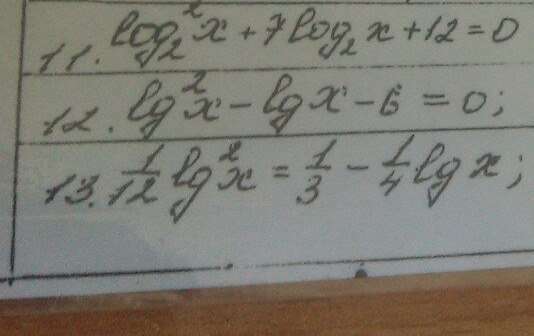 11. log₂²x + 7log₂x + 12 = 0
12. lg²x - lgx - 6 = 0;
13. 1/12 lg²x = 1/3 - 1/4 lgx;